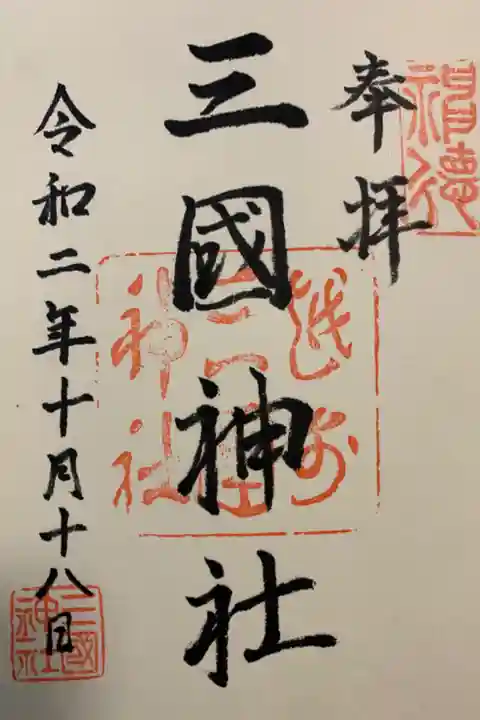 奉拝
三國神社
令和二年十月十八日
越前
三国
神社
三國
神社